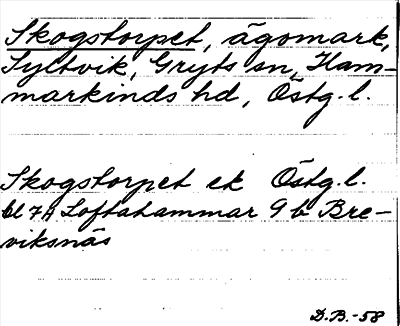 Skogstorpet, ägomark,
Syltvik, Gryts sn, Ham-
markinds hd, Östg.l.
Skogstorpet ek Östg.l.
bl 7A Loftahammar 9 b Bre-
viksnäs
D.B.-58